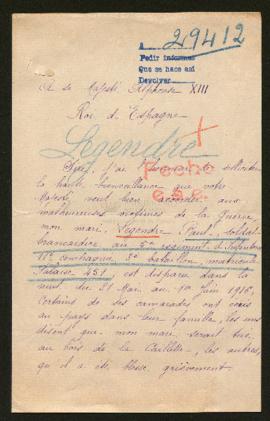 A 29412
Pedir informes
Que se hace asi
Devolver
A sa Majesté Alphonse XIII
Roi d'Espagne
Legendre
Poche
c.s.e.
Sire, J'ai l'honneur de solliciter
la haute bienveillance que votre
Majesté veut bien accorder aux
malheureuses victimes de la Guerre,
mon mari. Legendre Paul, soldat
brancardier au 5e régiment d'Infanterie
11e compagnie, 3e bataillon, matricule
451 est disparu dans la
nuit du 31 Mai au 1er Juin 1916.
Certains de ses camarades ont écrit
au pays dans leur famille, les uns
disent que mon mari serait tué
au bois de la Caillette, les autres,
qu'il a été blessé grièvement.